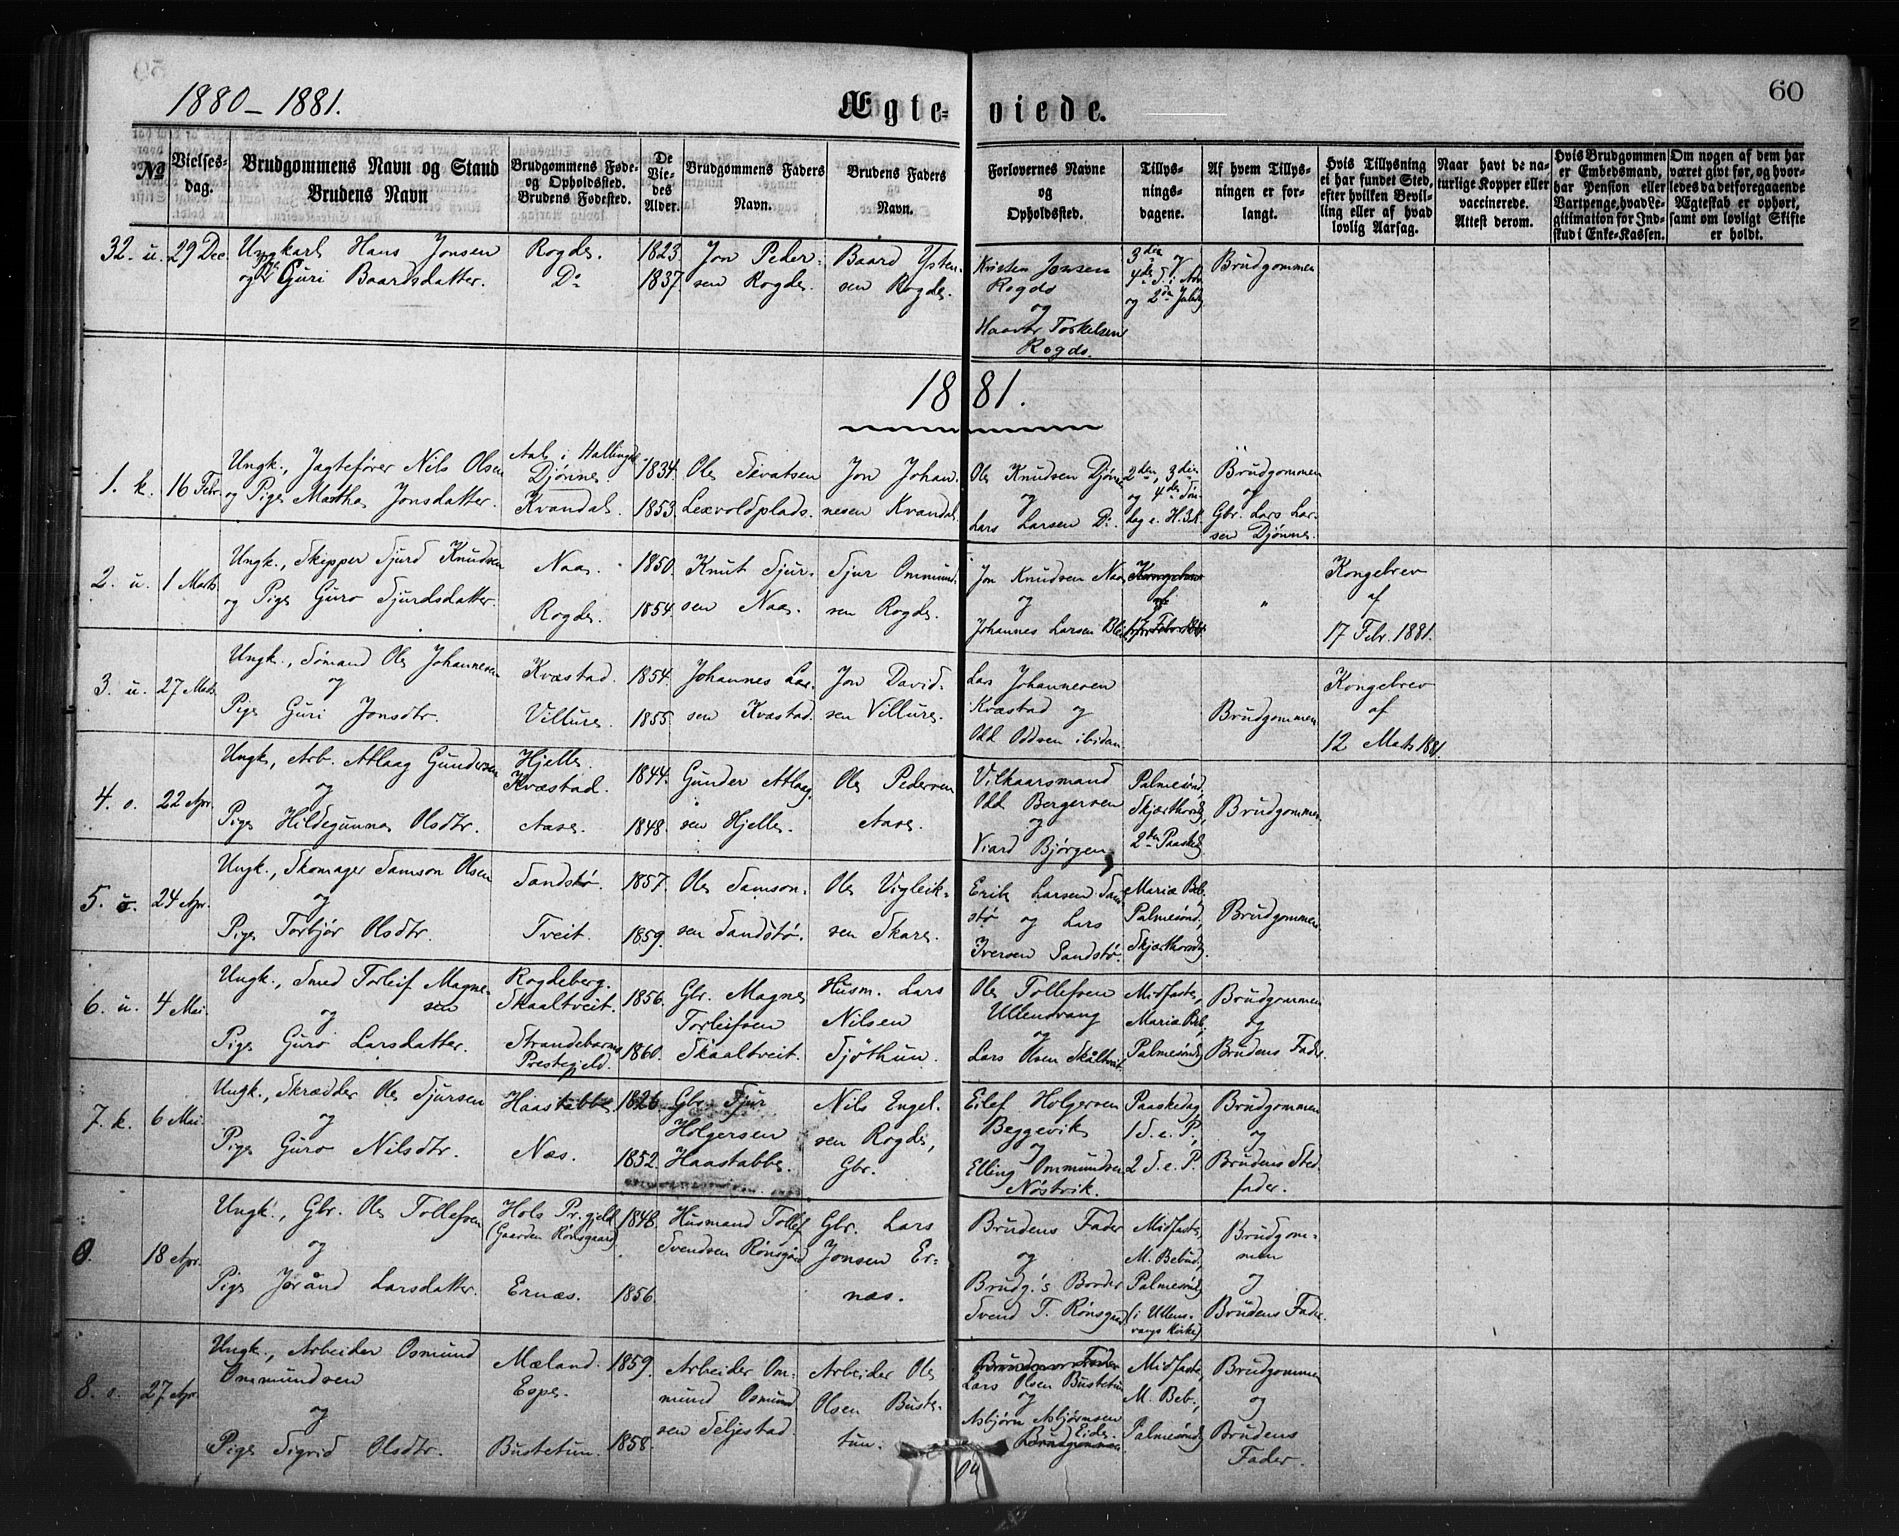 1880 – 1881.
Ægte-viede.
60
№
Vielses-
dag.
Brudgommens Navn og Stand
Brudens Navn
Brudgommens Føde-
og Opholdssted.
Brudens Fødested.
De
Vie-
des
Alder.
Brudgommens Faders
Navn.
Brudens Faders
Navn.
Forlovernes Navne
og
Opholdssted.
Tillys-
nings-
dagene.
Af hvem Tillys-
ningen er for-
langt.
Hvis Tillysning
ei har fundet Sted,
efter hvilken Bevil-
ling eller af hvad
lovlig Aarsag.
Naar havt de na-
turlige Kopper eller
vaccinerede.
Attest derom.
Hvis Brudgommen
er Embedsmand,
har Pension eller
Vartpenge, hvad Le-
gitimation for Ind-
skud i Enke-Kassen.
Om nogen af dem har
været givt før, og hvor-
ledes da det foregaaende
Ægteskab er ophørt,
samt om lovligt Skifte
er holdt.
32. u.
29 Dec
Ungkarl Hans Jonsen
og Guri Baardsdatter.
Rogde.
Do
1823
1837.
Jon Peder-
sen Rogde.
Baard Ysten-
sen Rogde.
Kristen Jonsen
Rogde
og
Haavar Torkelsen
Rogde.
3die og
4de S. i Adv
og 2den Juledg
Brudgommen
1881.
1. k.
16 Febr.
Ungk., Jægtefører Nils Olsen
og Pige Martha Jonsdatter.
Aal i Hallingd.
Djønne
Kvandal.
1834.
1853.
Ole Sevatsen
Lexvoldplads.
Jon Johan-
nesen Kvandal.
Ole Knudsen Djønne
og
Lars Larsen Do
2den, 3die
og 4de Søn-
dag e. H.3.K.
Brudgommen
og
Gbr. Lars Lar-
sen Djønne.
2. u.
1 Marts.
Ungk., Skipper Sjurd Knudsen
og Pige Guro Sjurdsdatter.
Naae.
Rogde.
1850.
1854.
Knut Sjur-
sen Naae.
Sjur Ommund-
sen Rogde.
Jon Knudsen Naae
og
Johannes Larsen
Kongebrev
af
17 Febr. 1881.
"
Kongebrev
af
17 Febr. 1881.
3. u.
27 Marts
Ungk., Sømand Ole Johannesen
og
Pige Guri Jonsdtr.
Kvæstad.
Villure.
1854.
1855.
Johannes Lar-
sen Kvæstad.
Jon David-
sen Villure.
Lars Johannesen
Kvæstad og
Odd Oddsen ibidem
Brudgommen
Kongebrev
af
12 Marts 1881.
4. o.
22 Apr.
Ungk., Arb. Atlaag Gundersen
og
Pige Hildegunna Olsdtr.
Hjelle.
Kvæstad.
Aase.
1844.
1848.
Gunder Atlaag-
sen Hjelle.
Ole Pedersen
Aase.
Vilkaarsmand
Odd Bergersen
og
Viard Bjørgen
Palmesønd,
Skjærthorsdg,
2den Paaskdg
Brudgommen
5. u.
24 Apr.
Ungk., Skomager Samson Olsen
og
Pige Torbjør Olsdtr.
Sandstø.
Tveit.
1857.
1859.
Ole Samson-
sen Sandstø.
Ole Vigleik-
sen Skare.
Erik Larsen Sand-
stø og Lars
Iversen Sandstø.
Mariæ Beb,
Palmesønd,
Skjærthorsdg.
Brudgommen
6. u.
4 Mai.
Ungk., Smed Torleif Magne-
og sen
Pige Guro Larsdatter.
Rogdeberg.
Skaaltveit.
Strandebarms
Prestegjeld.
1856.
1860.
Gbr. Magne
Torleifsen
Skaaltveit.
Husm. Lars
Nilsen
Sjøthun.
Ole Tollefsen
Ullensvang
og
Lars Olsen Skåltveit
Midfaste,
Mariæ Beb,
Palmesøndg
Brudgommen
og
Brudens Fader.
7. k.
6 Mai.
Ungk., Skrædder Ole Sjursen
og
Pige Guro Nilsdtr.
Haastabbe.
Næs.
1826.
1852.
Gbr. Sjur
Holgersen
Haastabbe.
Nils Engel-
sen Rogde,
Gbr.
Eilef Holgersen
Beggevik
og
Elling Ommundsen
Nøstvik.
Paaskedag,
1 S. e. P.,
2 S. e. P.
Brudgommen
og
Brudens Sted-
fader.
18 Apr.
Ungk., Gbr. Ole Tollefsen
og
Pige Jørånd Larsdatter.
Hols Pr.gjeld
(Gaarden Rønsgaard)
Ernæs.
1848.
1856.
Husmand Tollef
Svendsen Rønsgård
Gbr. Lars
Jonsen Er-
næs.
Brudens Fader
og
Brudg.'s Broder
Svend T. Rønsgaard
Midfaste,
M. Bebud,
Palmesøndg
(i Ullens-
vangs Kirke)
Brudgom-
men
og
Brudens Fader.
8. o.
27 Apr.
Ungk., Arbeider Osmund
Ommundsen
og
Pige Sigrid Olsdtr.
Mæland.
Espe.
Bustetun.
1859.
1858.
Arbeider Om-
mund Osmund-
sen Seljestad.
Arbeider Ole
Olsen Buste-
tun.
Lars Olsen Bustetun
og
Asbjørn Asbjørnsen
Eide.
Midfaste,
M. Beb.,
Palmesøndg
Brudgommen
og
Brudens
Fader.